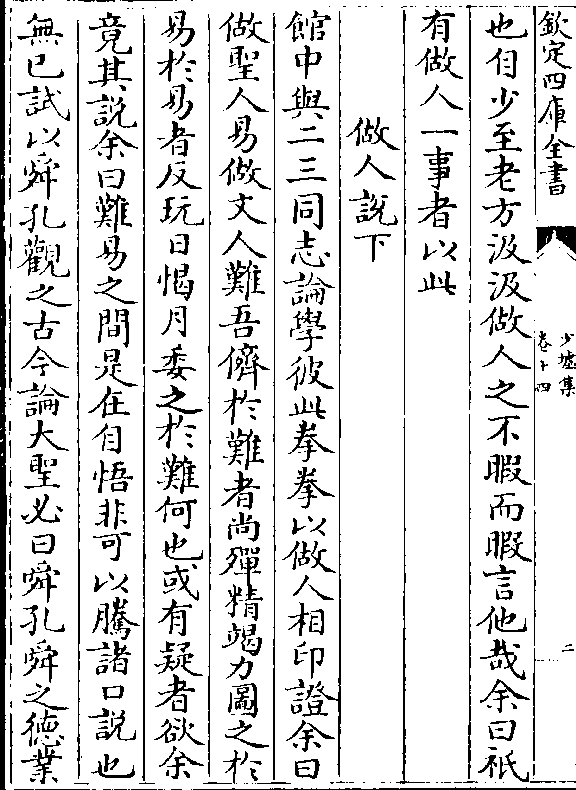 欽定四庫全書
少墟集
卷十四
二
也自少至老方汲汲做人之不暇而暇言他哉余曰祇
有做人一事者以此
做人説下
館中與二三同志論學彼此拳拳以做人相印證余曰
做聖人易做文人難吾儕於難者尚殫精竭力圖之於
易於易者反玩日愒月委之於難何也或有疑者欲余
竟其説余曰難易之間是在自悟非可以騰諸口説也
無已試以舜孔觀之古今論大聖必曰舜孔舜之德業